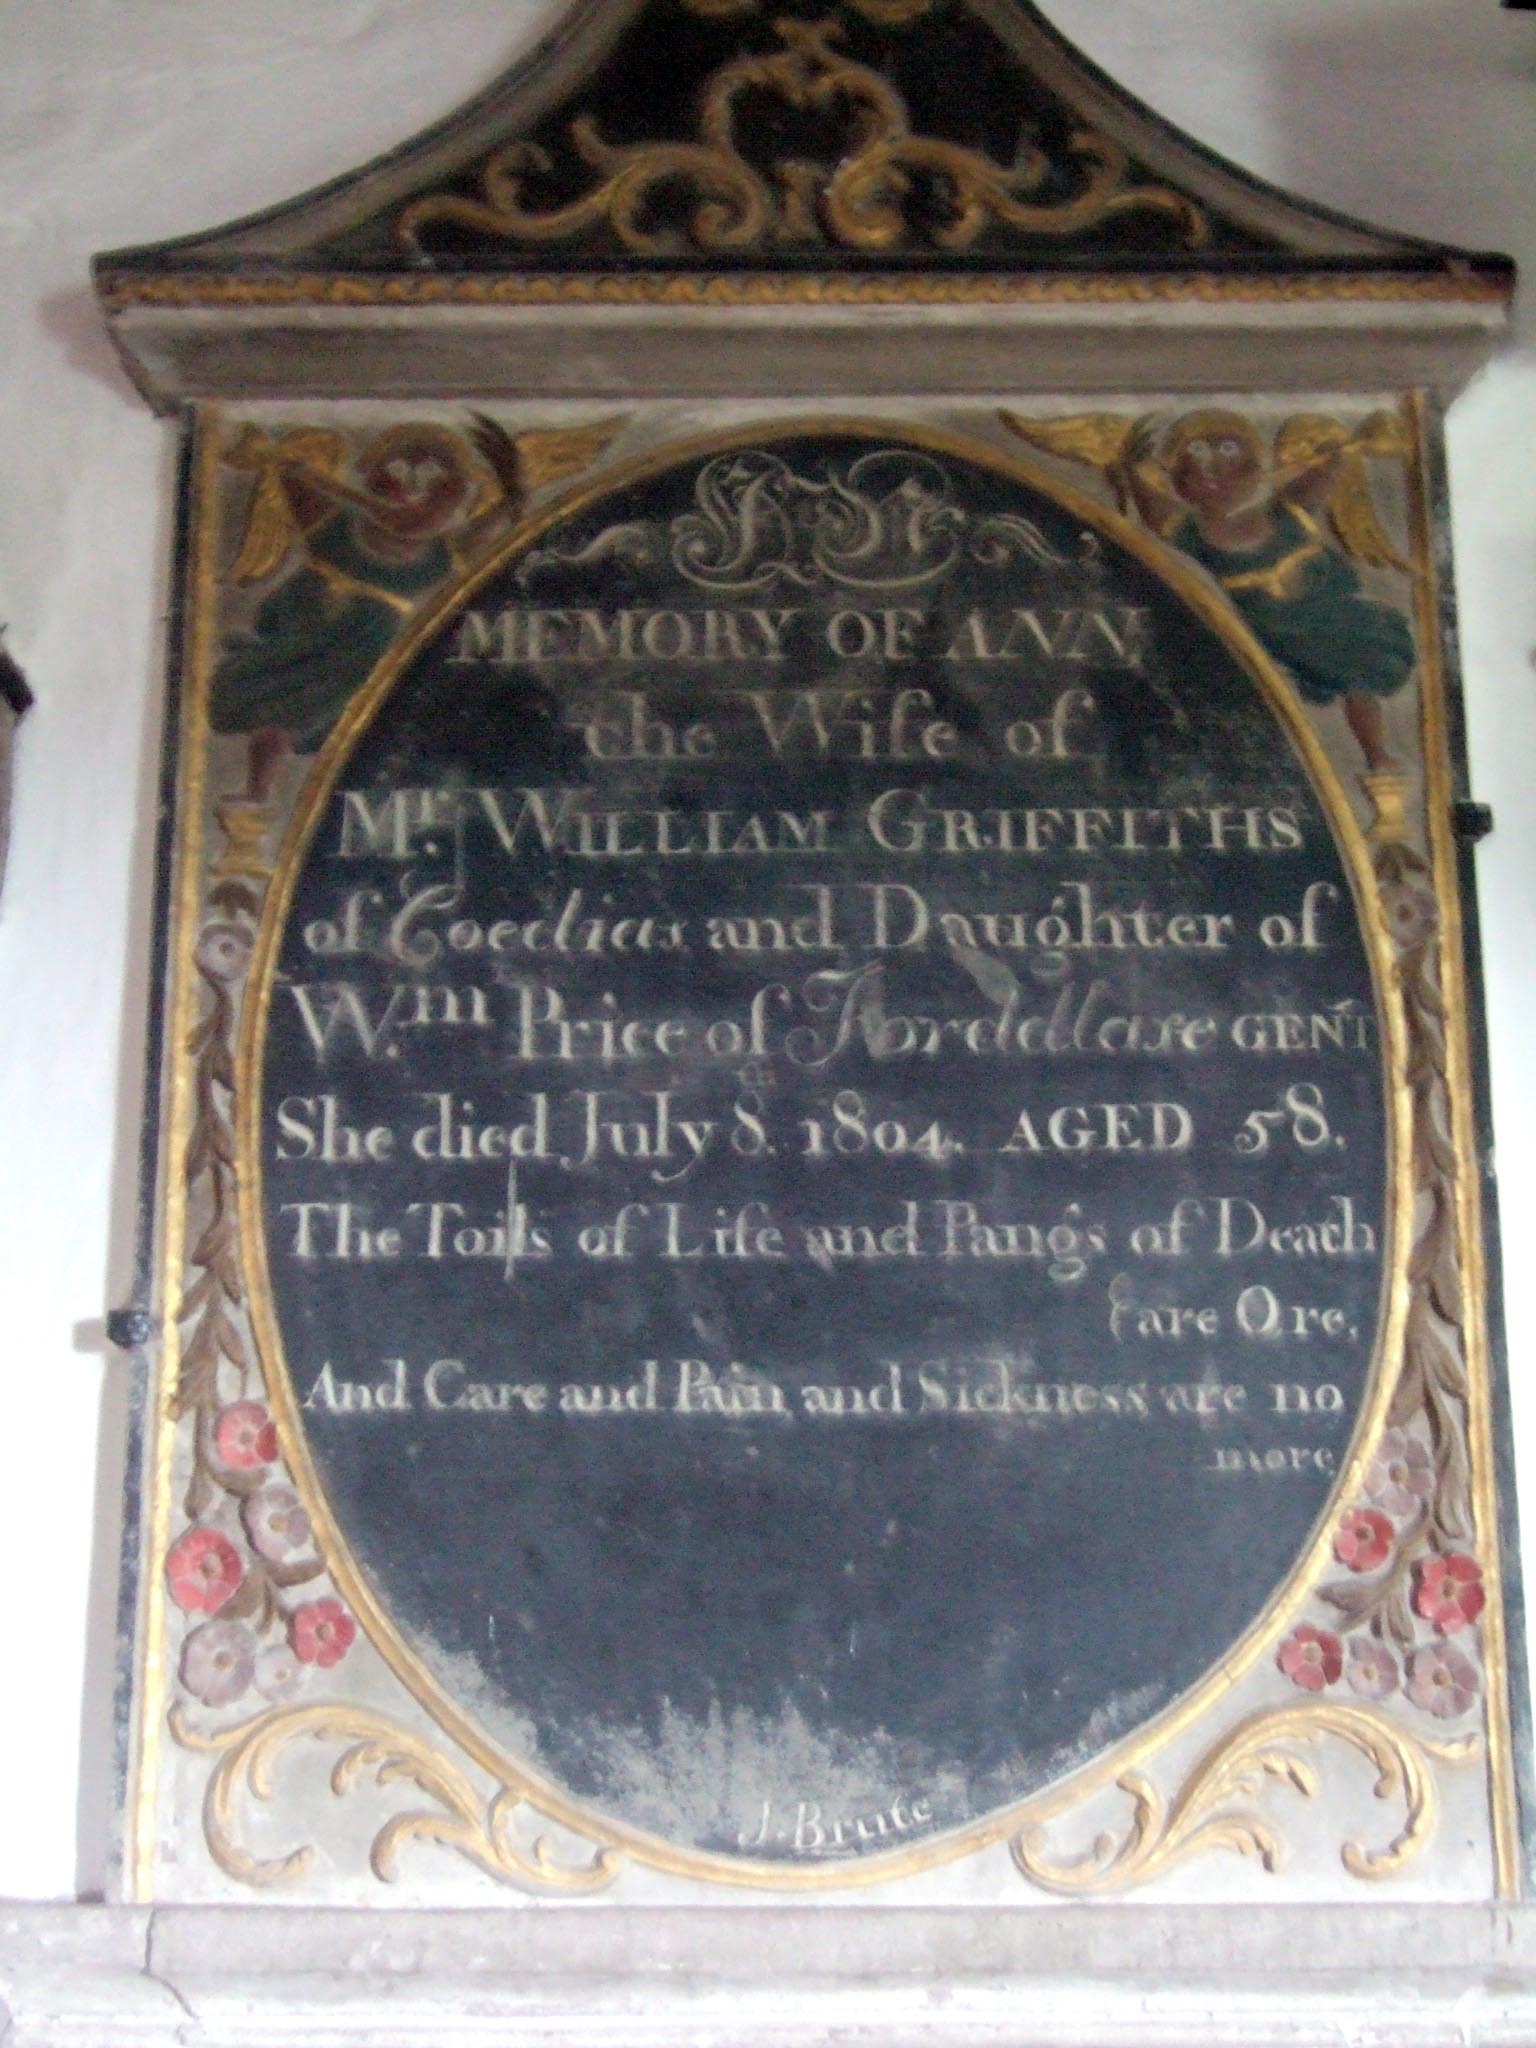 In
MEMORY OF ANN,
the Wife of
Mr. WILLIAM GRIFFITHS
of Coedlias and Daughter of
Wm. Price of Forddlase GENT
She died July 8.th 1804. AGED 58.
The Toils of Life and Pang's of Death
are Ore,
And Care and Pain, and Sickness are no
more,
J. Brute